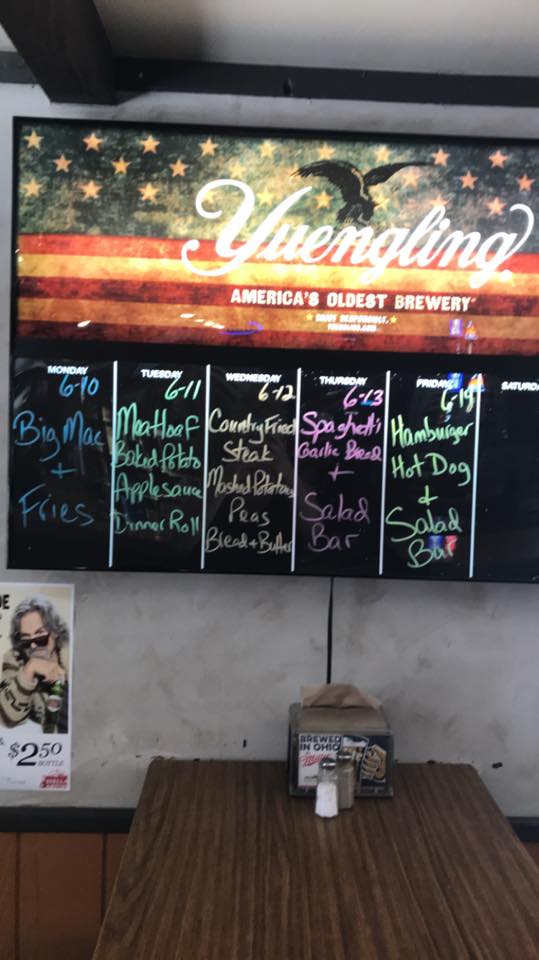 Yuengling
AMERICA'S OLDEST BREWERY
ENJOY RESPONSIBLY.
YUENGLING.COM
MONDAY
6-10
Big Mac
+
Fries
TUESDAY
6-11
Meatloaf
Baked Potato
Applesauce
Dinner Roll
WEDNESDAY
6-12
Country Fried
Steak
Mashed Potatoes
Peas
Bread + Butter
THURSDAY
6-13
Spaghetti
Garlic Bread
+
Salad
Bar
FRIDAY
Hamburger
Hot Dog
+
Salad
Bar
SATURD
$2.50
BOTTLE
BREWED
IN OHIO
Miller